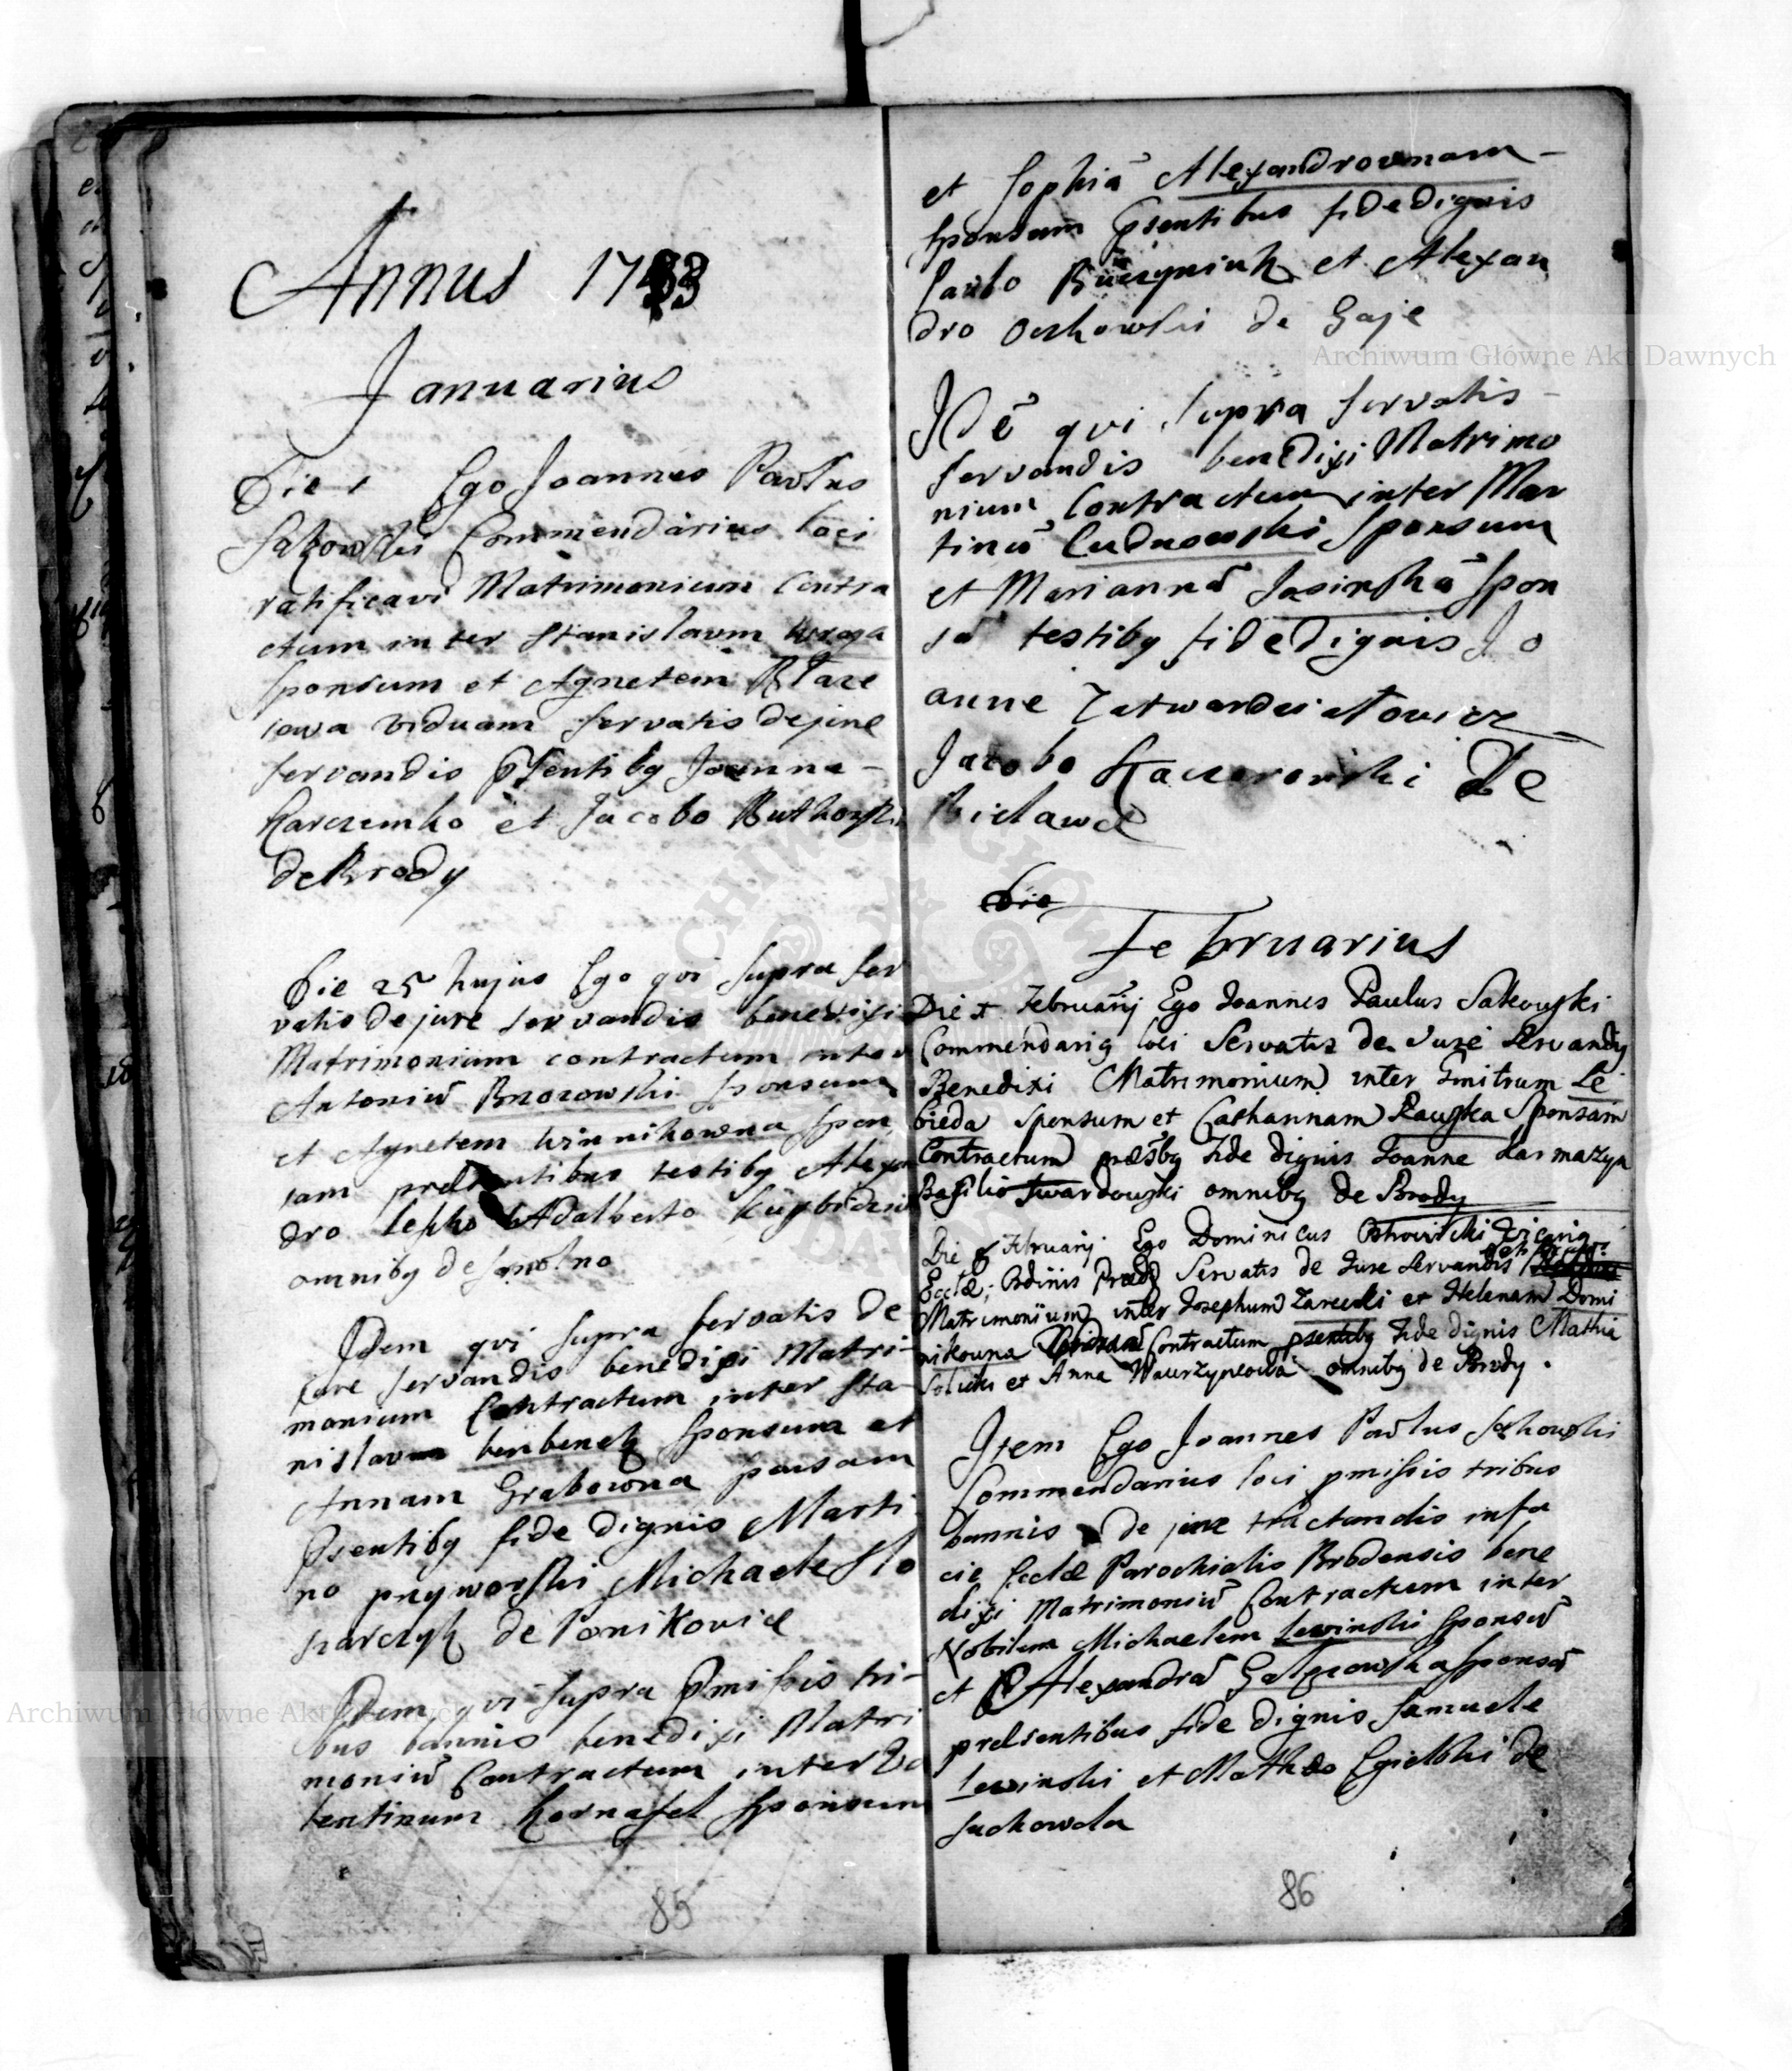 Annus 1783
Januarius
Die 1 Ego Joannes Paulus
Sakowski Commendarius loci
ratificavi Matrimonium Contra
ctum inter Stanislaum
sponsum et Agnetem Blaze
iowa viduam servatis de jure
servandis psentibg Joanne
Karczmko et Jacobo Rutkowski
de Brody
Die 25 hujus Ego qvi supra ser
vatis de jure servandis benedixi
Matrimonium contractum inter
Antoniū Brozowski sponsum
et Agnetem Winnikowna spon
sam presentibus testibg Alexan
dro Lesko Adalberto
omnibg de Smolno
Idem qvi supra servatis de
jure servandis benedixi Matri-
monium Contractum inter Sta-
nislaum benbenek sponsum et
Annam Grabowna sponsam
Psentibg fide dignis Marti
no przyworski Michaele Slo
narczyk de Ponikovice
Idem qvi supra Pmissis tri-
bus bannis benedixi Matri
moniū Contractum inter Va
lentinum Kornasel sponsum
85
et Sophiā Alexandrownam
sponsam Psentibus fide dignis
Paulo et Alexan
dro Ochowski de Gaje
Idē qvi supra servatis
servandis benedixi Matrimo
nium Contractum inter Mar
tinū Cudnowski Sponsum
et Mariannā Jasinskā spon
sā testibg fide dignis Jo
anne Zatwardzialowicz
Jacobo Kaczorowski De
Bielawce
Die
Februarius
Die Februarij Ego Joannes Paulus Sakowski
Commendarig loci Servatis de Jure Servandis
Benedixi Matrimonium inter Dmitrum Le
bieda Sponsum et Catharinam Rauska Sponsam
Contractum præsbg Fide dignis Joanne Karmazyn
Basilio Twardowski omnibg de Brody
Die 8 Februarij Ego Dominicus Ostrowicki Vicarig
Ecclæ Servatis de Jure Servandis
Matrimonium inter Josephum Zarecki et Helenam Domi
nikouna Contractum psentibg Fide dignis Mathia
Solicki et Anna Wawrzyncowa omnibg de Brody.
Item Ego Joannes Paulus Sakowski
Commendarius loci pmissis tribus
bannis de jure tractandis infa
cie Ecclæ Parochialis Brodensis bene
dixi Matrimoniū Contractum inter
Nobilem Michaelem Lewinski Sponsū
et Alexandrā Galezowska sponsā
presentibus fide dignis Samuele
Lewinski et Mathæo Egielski de
Suchowola
86
Archiwum Główne Akt Dawnych
Archiwum Główne Akt Dawnych